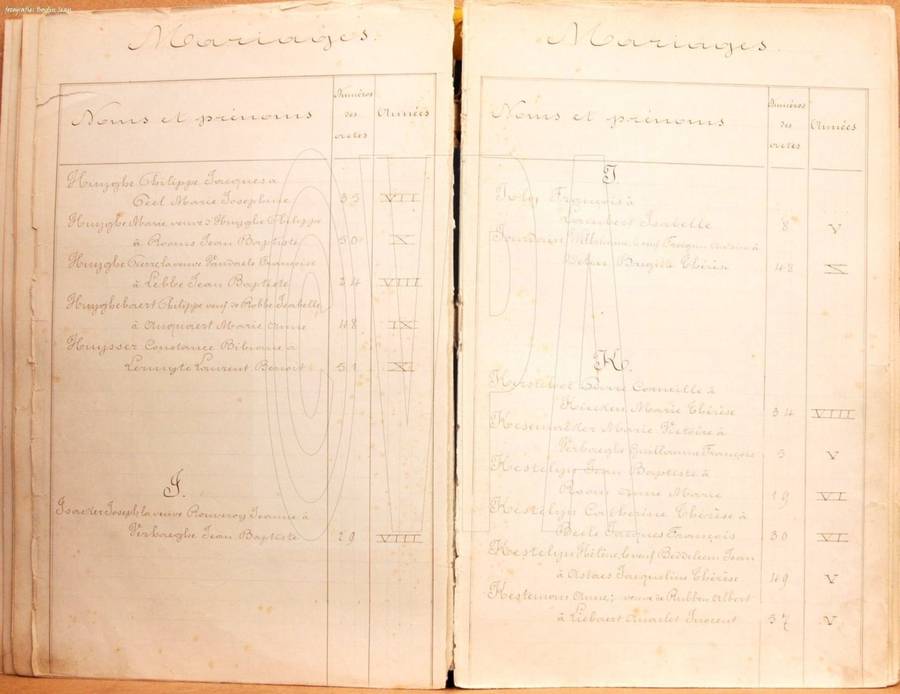 fotografie: Boydin Jean
Mariages.
Noms et prénoms
Numéros des actes
Années
Huyghe Philippe Jacques à
Marie Josephine 35 VII
Huyghe Marie veuve d'Huyghe Philippe
à Rooms Jean Baptiste 50 IX
Huyghe Pierre la veuve Vandaele Françoise
à Lebbe Jean Baptiste 24 VIII
Huyghebaert Philippe veuf de Robbe Isabelle
à Marie Anne 48 IX
Huysser Constance Bibiane à
Lermyte Laurent Benoit 51 XI
I.
Isacker Joseph la veuve Rouveroy Jeanne à
Verhaeghe Jean Baptiste 29 VIII
Mariages.
Noms et prénoms
Numéros des actes
Années
J.
François à
Lambert Isabelle 8 V
Jourdain
Brigide Thérèse 48
K.
Pierre Corneille à
Kiecken Marie Thérèse 34 VIII
Marie Victoire à
Verhaeghe Guillaume François 5 V
Kestelyn Jean Baptiste à
Rooms Anne Marie 19 VI
Kestelyn Catherine Thérèse à
Beele Jacques François 30 VI
Kestelyn Hélène, le veuf Jean
à Astaes Jacqueline Thérèse 49 V
Kestemans Anne; veuve de Rubben Albert
à Liebaert Inocent 37 V
OVPA